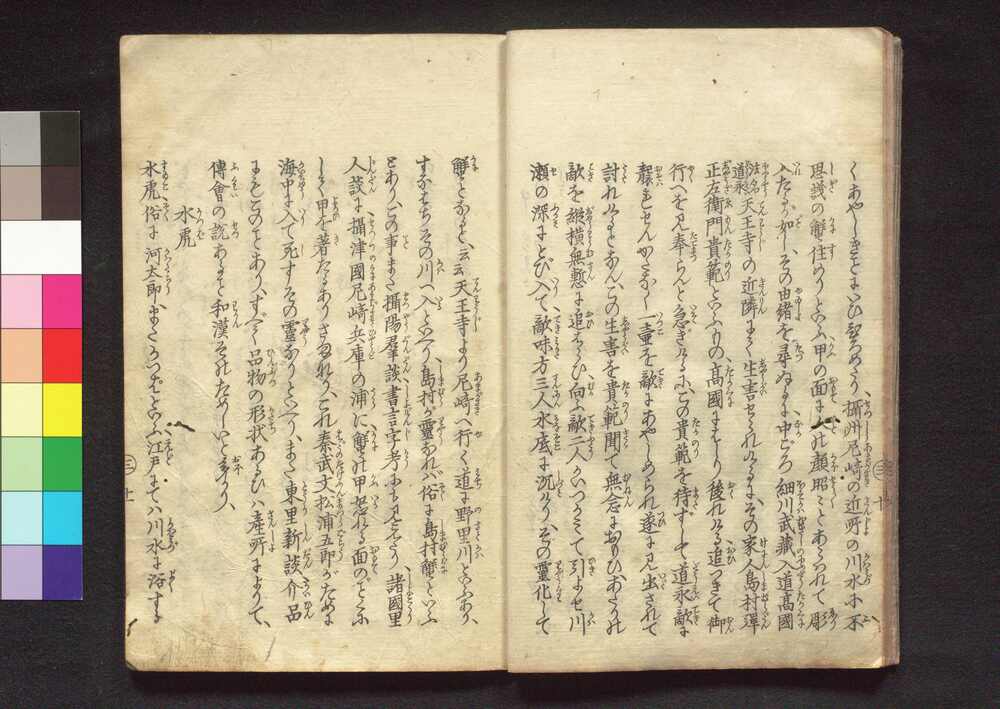 くあやしきことにいひ習へり、攝州尼崎の近所の川水に不
思議の蟹住めりといふ甲の面に人の顔昭々とあらはれて彫
入たるが如しその由緒を尋ぬるに中ごろ細川武藏入道高國
法名道永天王寺の近隣にて生害せられけるに、その家人島村彈
正左衛門貴範といふもの、高國にはぐり後れける追つきて御
行へを見奉らんと急ぎけるに、この貴範を待ずして道永敵に
襲れせんかたなく一壷を敵にあやしめられ遂に見出されて
討れけるとなん、この生害を貴範聞て無念におもひあたりの
敵を縱横無慙に追はらひ向ふ敵二人かいつかみて引よせ川
瀬の深にとび入て、敵味方三人水底に沈めり、その靈化して
蟹となると、云云天王寺より尼崎へ行く道に野里川といふあり、
すなはちその川へ入といへり、島村が靈なれバ俗に島村蟹といふ
とありこの事また攝陽羣談書言字考にも見えたり、諸國里
人談に攝津國尼崎兵庫の浦に蟹の甲怒れる面のごとふ
して甲を着たるありさまなりこれ秦武文松浦五郎がために
海中に入て死すその靈なりといへり、また東里新談介品
にもこのことあり、すべて品物の形状あるひハ産所によりて、
傳會の説あること和漢それためしいと多かり、
水虎
水虎俗に河太郎またかつぱといふ江戸にてハ川水に浴する
三ノ十
三ノ十一